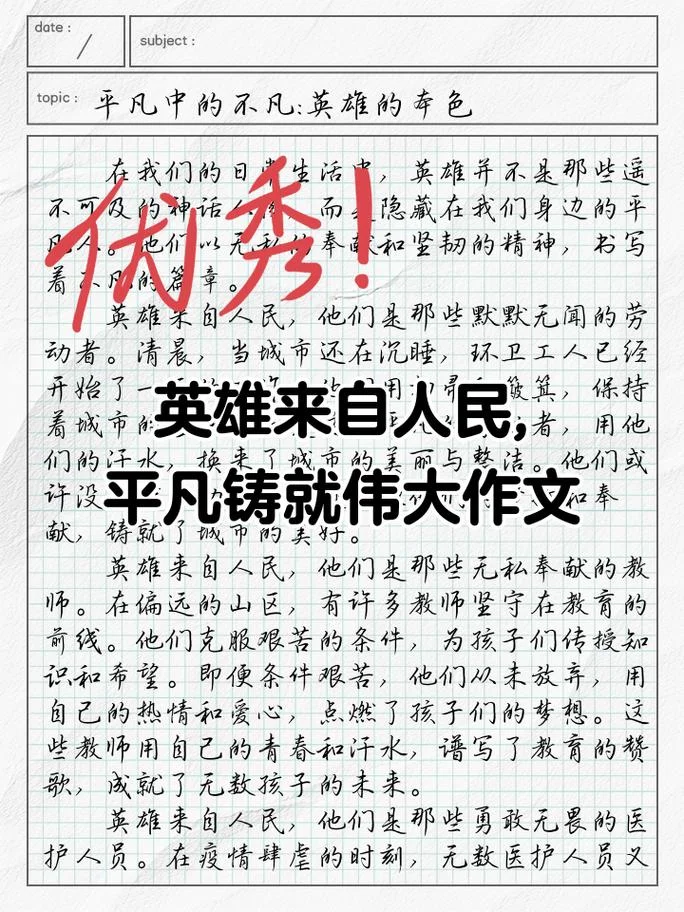 date :
/
subject :
topic : 平凡中的不凡:英雄的本色
在我们的日常生活中，英雄并不是那些遥
不可及的神话人物，而是隐藏在我们身边的平
凡人。他们以无私的奉献和坚韧的精神，书写
着不凡的篇章。
优秀!
英雄来自人民，他们是那些默默无闻的劳
动者。清晨，当城市还在沉睡，环卫工人已经
开始了一 用 簸箕，保持
英雄来自人民,
着城市的 者，用他
们的汗水，换来了城市的美丽与整洁。他们或
平凡铸就伟大作文
许没 和奉
献，铸就了城市的美好。
英雄来自人民，他们是那些无私奉献的教
师。在偏远的山区，有许多教师坚守在教育的
前线。他们克服艰苦的条件，为孩子们传授知
识和希望。即便条件艰苦，他们从未放弃，用
自己的热情和爱心，点燃了孩子们的梦想。这
些教师用自己的青春和汗水，谱写了教育的赞
歌，成就了无数孩子的未来。
英雄来自人民，他们是那些勇敢无畏的医
护人员。在疫情肆虐的时刻，无数医护人员义